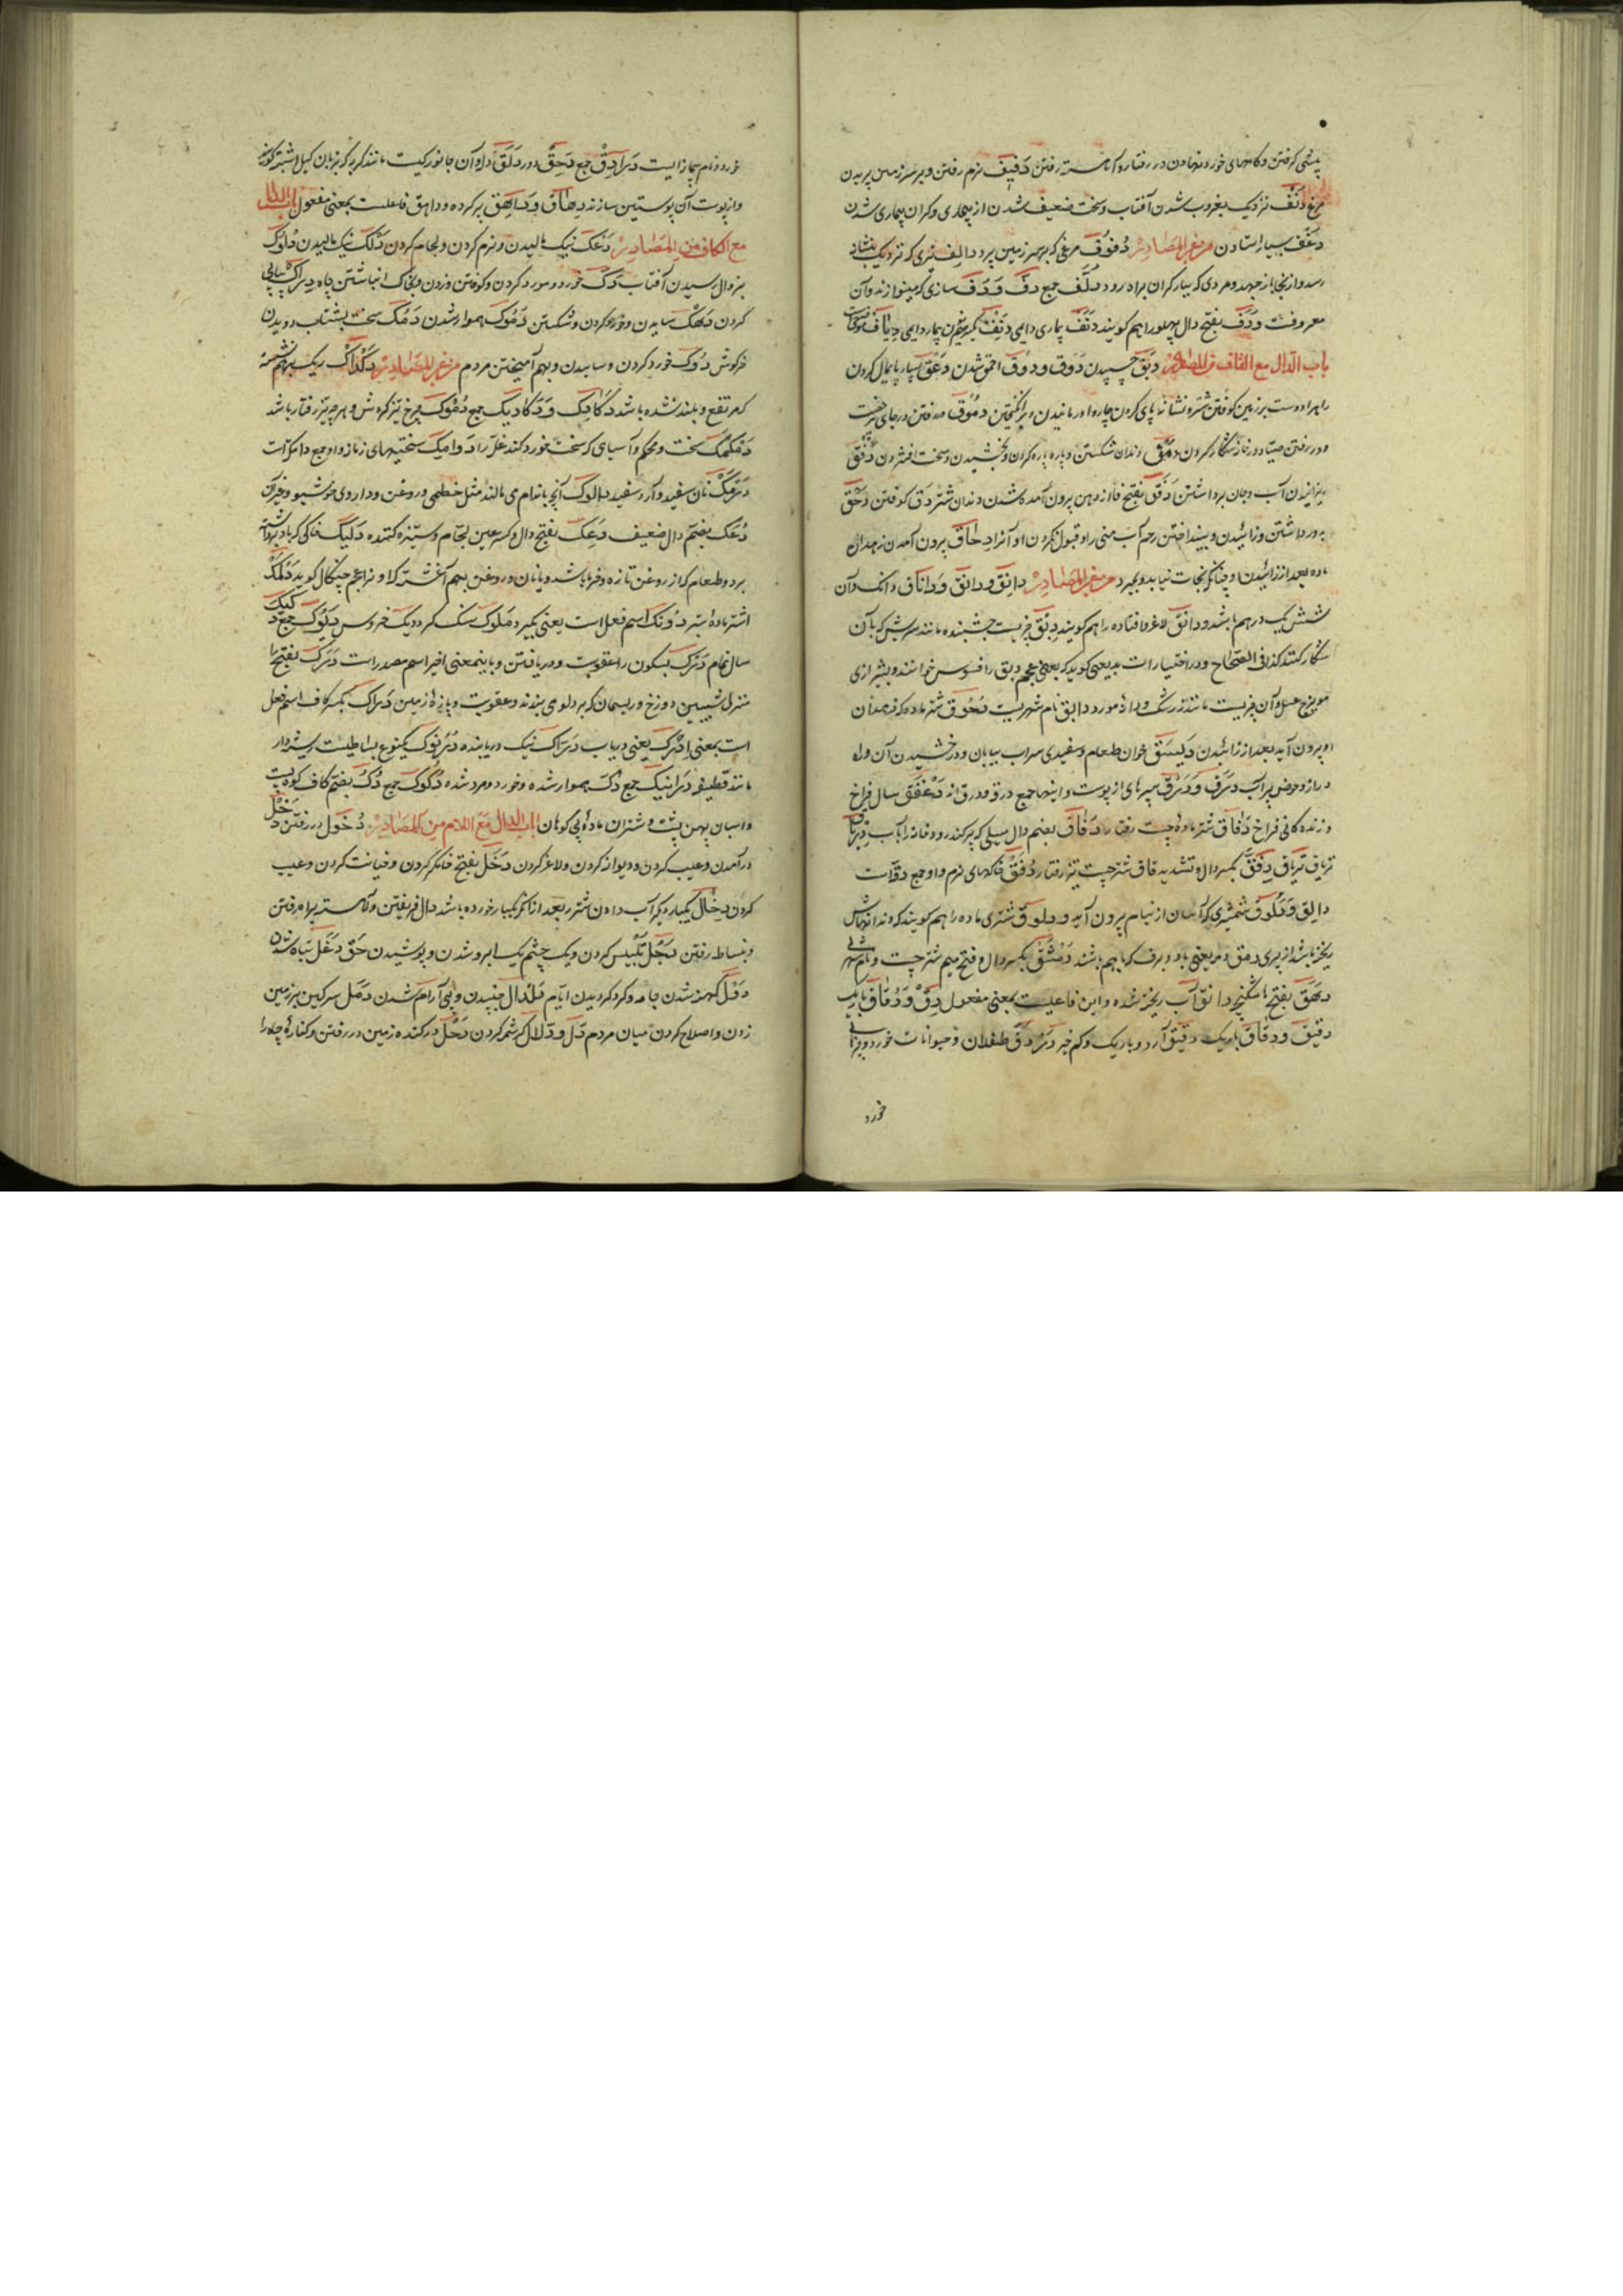 پیشی گرفتن و کامهای خورد نهادن در رفتار و آهسته رفتن دَفیف نرم رفتن و بر سر زمین پریدن
مرغ دَنَف نزدیک بغروب شدن آفتاب و سخت ضعیف شدن از بیماری و گران بیماری شدن
بسیار استادن من غیر المصادر دُفوُف مرغی که بر سر زمین پرد دالِف تیری که نزدیک نشانه
رسد و از آنجا باز جهد و مردی که ببار گران براه رود دُلَّف جمع دفّ و دَف سازی که مینوازند و آن
معروفست و دَف بفتح دال پهلو را هم گویند دَنَف بیماری دایمی دَنِف بکسر نون بیمار دایمی
باب الدال مع القاف من المصادر دَبَق چسپیدن دَوق و دُوق احمق شدن دَعْق بسیار پایمال کردن
راه را و دست بر زمین کوفتن شتر و نشانه پای کردن چاروا و رمانیدن و برانگیختن دُموُق در رفتن در جای
و در رفتن صیاد در خانه شکار کردن دَمْق دندان شکستن و پاره پاره کردن و بخشیدن و سخت افشردن دَفْق
ریزانیدن آب و جان برداشتن دَفَق بفتح فا از دهن بیرون آمده شدن دندان شتر دَق کوفتن دَحْق
دور داشتن و زائیدن و بینداختن رحم آب منی را و قبول نکردن او آنرا دِحاق بیرون آمدن زهدان
ماده بعد از زائیدن او چنانکه نجات نیابد و بمیرد من غیر المصادر دانِق و دانَق و داناق دانک و آن
شش یک درهم باشد و دانق لاغر و افتاده را هم گویند دِبْق چیزیست چسبنده مانند سریش که بآن
شکار کنند کذا فی الصّحاح و در اختیارات بدیعی گوید که بعضی عجم دبق را خوانند و بشیرازی
مویزج عسل و آن چیزیست مانند زرشک و دانهٔ مورد دابق نام شهریست دَحُوق شتر ماده که زهدان
او بیرون آید بعد از زائیدن دَیْسَق خوان طعام و سفیدی سراب بیابان و درخشیدن آن و راه
دراز و حوض پر آب دَرَق و دَرَق سپرهای از پوست و اینها جمع درقه و درق اند دَغْفَق سال فراخ
و زندگانی فراخ دِفاق شتر ماده چست رفتار دُفاق بضم دال سیلی که پر کند رودخانه را بآب دِریاق
تریاق دِفَقّ بکسر دال و تشدید قاف شتر چست تیز رفتار دُقَق خاکهای نرم و او جمع دقّه است
دالِق و دَلُوق شمشیری که آسان از نیام بیرون آید و دلوق شتری ماده را هم گویند که دندانهاش
ریخته باشد از پیری دمق دمه یعنی باد و برف که با هم باشد دِمَشْق بکسر دال و فتح میم شتر چست و نام شهر
دَهَق بفتح ها شکنجه دافق آب ریخته شده و این فاعلیست بمعنی مفعول دِقّ و دُقاق باریک
دقیق و دقاق باریک دقیق آرد و باریک و کم خیر دَرْدَق طفلان و حیوانات خورد
خورد
خورد و نام پیمانه ایست دَرادِق جمع دَلَق دله و آن جانوریست مانند گربه که بزبان
و از پوست آن پوستین سازند دِهاق و داهِق پر کرده و داهق فاعلست بمعنی مفعول باب الدال
مع الکاف من المصادر دَعْک نیک مالیدن و نرم کردن و لجام کردن دَلْک نیک مالیدن دُلوُک
بزوال رسیدن آفتاب دَک خورد و مورد کردن و کوفتن و زدن و بخاک انباشتن چاه دِراک پیاپی
کردن دَهْک سابیدن و خورد کردن و شکستن دَمُوک هموار شدن دَمْک سخت بشتاب دویدن
خرگوش دَوک خورد کردن و سابیدن و بهم آمیختن مردم من غیر المصادر دَکْداک ریک بر هم نشسته
که مرتفع و بلند نشده باشد دَکادِک و دَکادیک جمع دَمُوک چرخ تیز گردش و هر چه تیز رفتار باشد
دَمَکْمَک سخت و محکم و آسیای که سخت خورد کند غلّه را دَوامیک سختیهای زمانه و او جمع دامکة است
دَرْمَک نان سفید و آرد سفید دالوک آنچه باندام می مالند مثل خطمی و روغن و داروی خوشبو و غیر آن
دُعَک بضم دال ضعیف دَعِک بفتح دال و کسر عین لجام و ستیزه کننده دَلیک خاکی که باد
برد و طعام که از روغن تازه و خرما باشد و یا نان و روغن بهم آغشته که او را عجم چنگال گوید
اسم فعل است یعنی بگیر و دیک خروس دُیُوک جمع
سال تمام دَرْک بسکون را عقوبت و دریافتن و باینمعنی اخیر اسم مصدر است دَرَک بفتح را
منزل شیبین دوزخ و ریسمان که بر دلو می بندند و عقوبت دَراک بکسر کاف اسم فعل
است بمعنی اِدْرِک یعنی دریاب دَرّاک نیک دریابنده دُرْنُوک یکنوع بساطیست ریشه دار
مانند قطیفه دَرانیک جمع دَک هموار شده و خورد و مرد شده دُکُوک جمع دُک بضم کاف کوه پست
و اسبان پهن پشت و شتران ماده بی کوهان باب الدال مع اللام من المصادر دُخول در رفتن
درآمدن و عیب کردن و دیوانه کردن و لاغر کردن دَخَل بفتح خا مکر کردن و خیانت کردن و عیب
کردن دِخال یکبار دیگر آب دادن شتر بعد از آنکه یکبار خورده باشد دال فریفتن و آهسته براه رفتن
و بنشاط رفتن دَجْل تلبیس کردن و یک چشم یک ابرو شدن و پوشیدن حق دَغَل تباه شدن
کهنه شدن جامه و گرد گردیدن ایام دَلْدال جنبیدن و بی آرام شدن دَمل سرگین بر زمین
زدن و اصلاح کردن میان مردم دَل و دَلال کرشمه کردن دَحْل در کنده زمین در رفتن و کناره چاه را